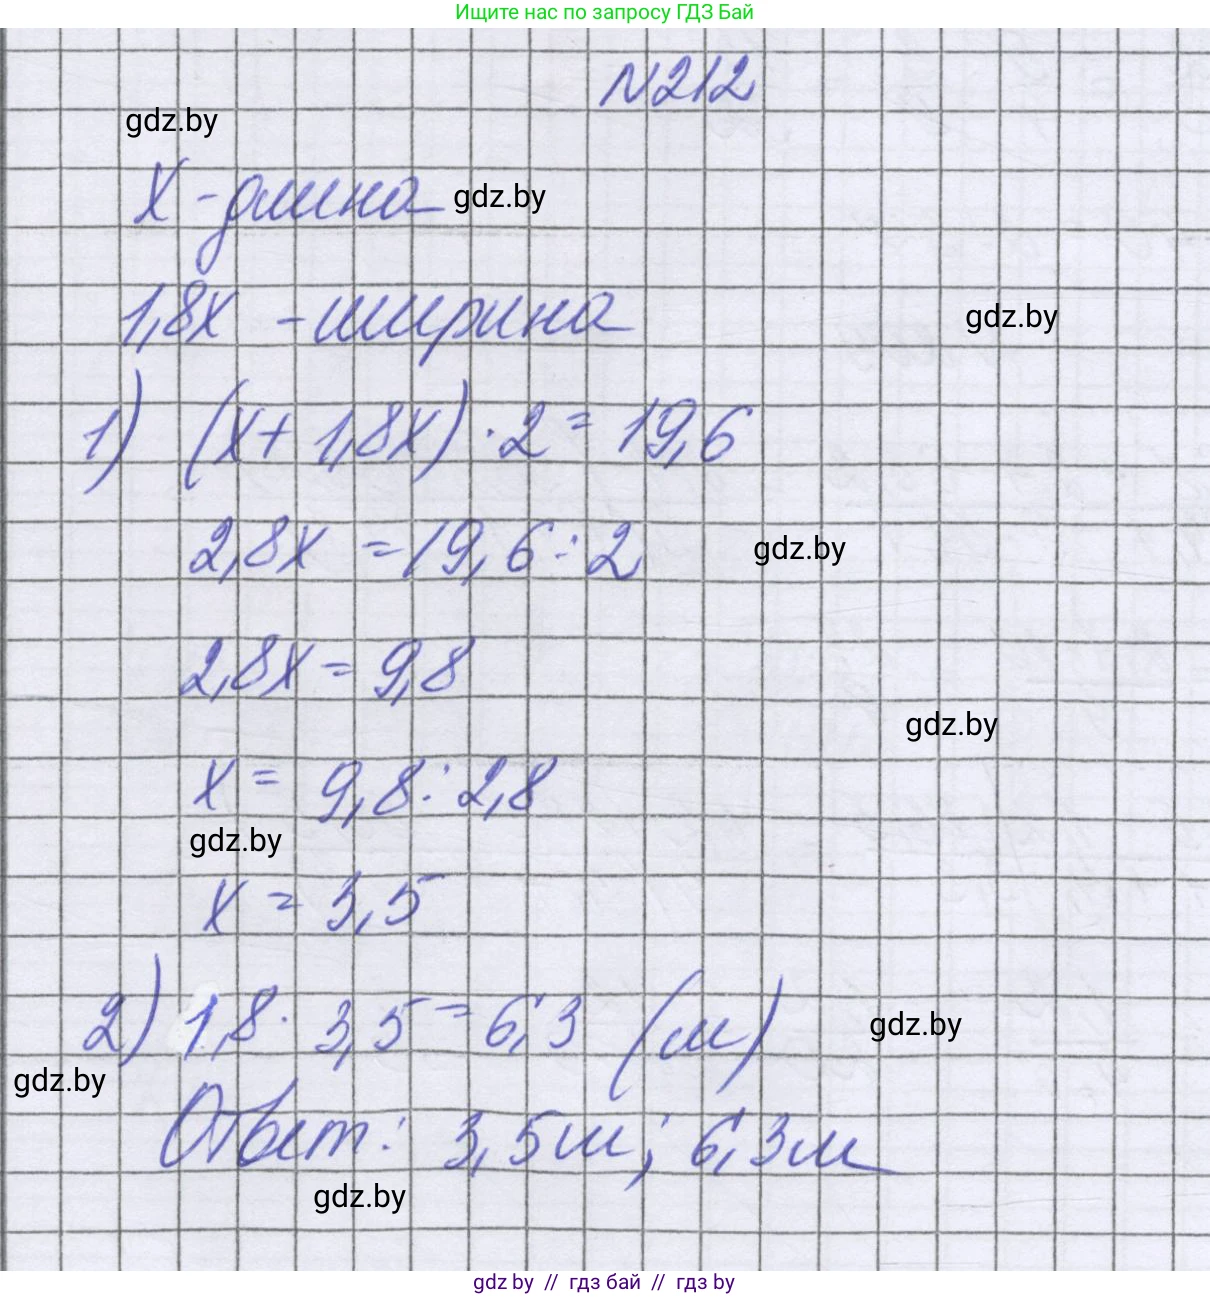 Ищите нас по запросу ГДЗ Бай
N212
gdz.by
x - длина gdz.by
1,8x - ширина
gdz.by
1) (x + 1,8x) · 2 = 19,6
2,8x = 19,6 : 2
gdz.by
2,8x = 9,8
gdz.by
x = 9,8 : 2,8
gdz.by
x = 3,5
2) 1,8 · 3,5 = 6,3 (м)
gdz.by
gdz.by
Ответ: 3,5м; 6,3м
gdz.by
gdz by // гдз бай // гдз by